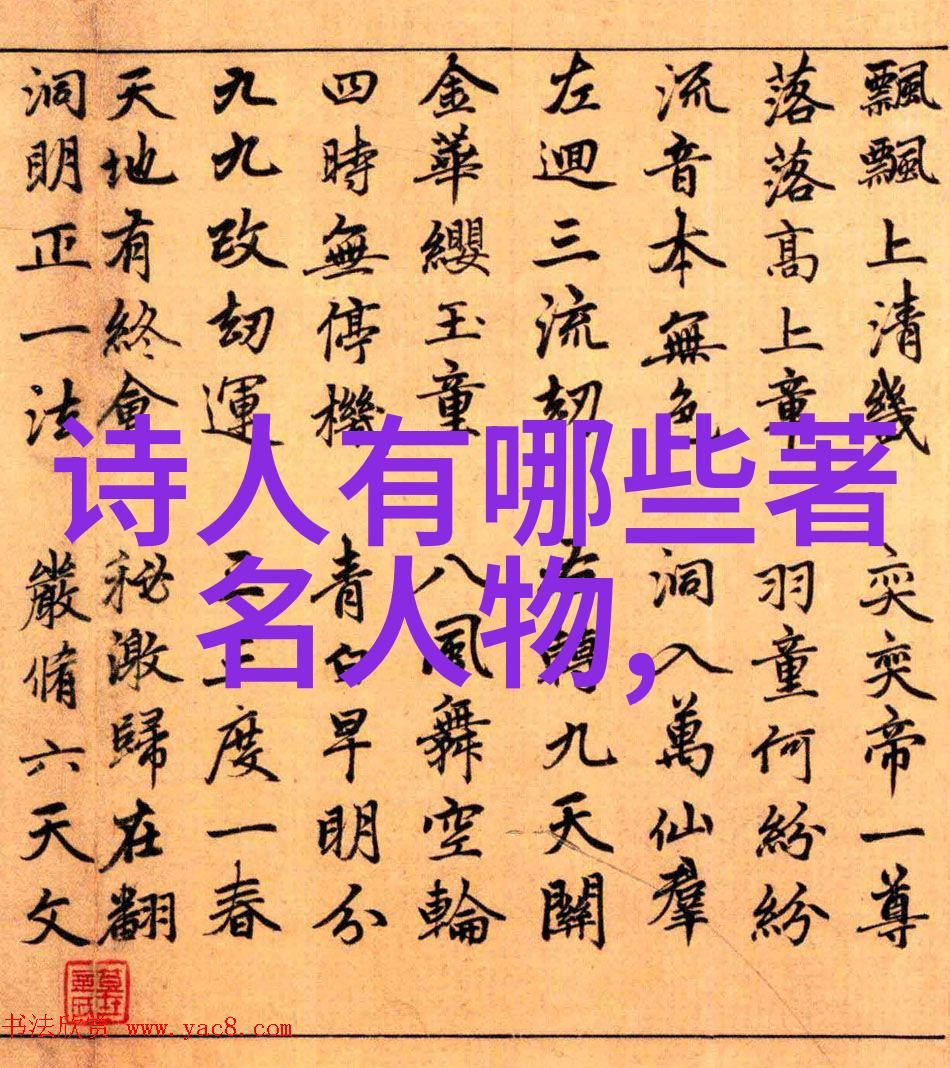 飄飄上清幾 奕奕帝一尊
落落高上章 羽童何紛紛
流音本無色 洞入萬仙羣
左迴三流刼 右轉九天關
金華纓玉童 八風舞空輪
四時無停機 青早明分
九九改刼運 度一春
天地有終會 秘激歸在翻
洞明正一法 嚴脩六天文
诗人有哪些著
名人物,
书法欣赏 www.yac8.com